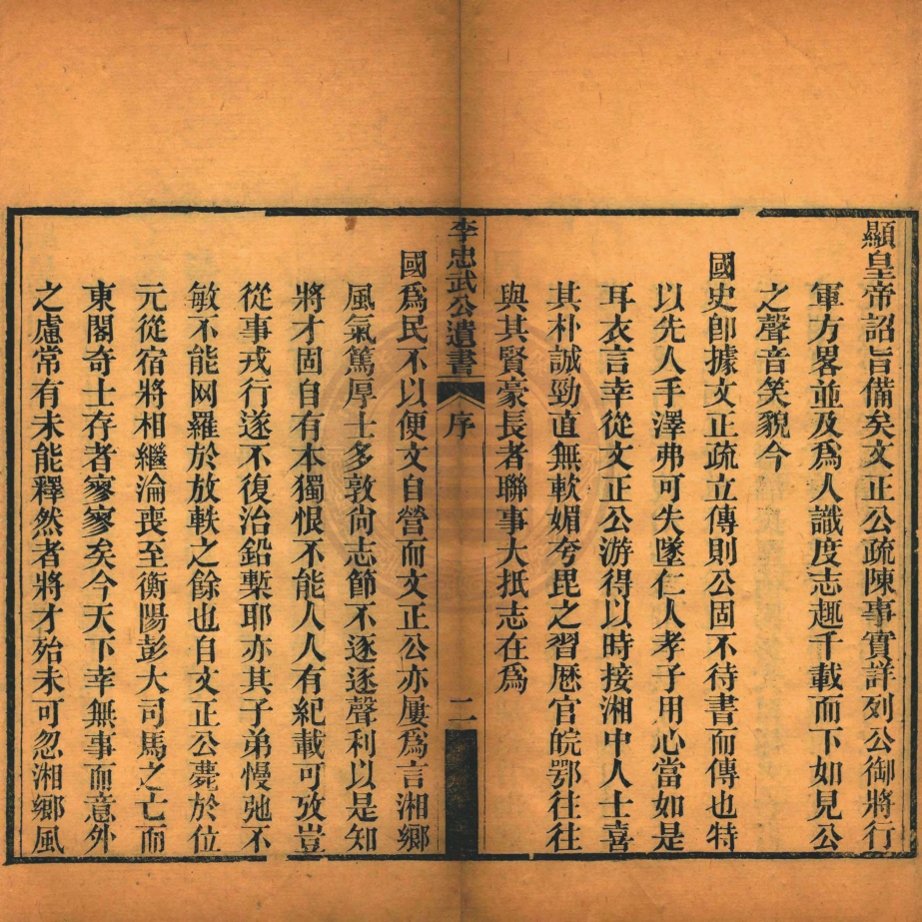 顯皇帝詔旨備矣文正公疏陳事實詳列公御將行
軍方畧並及爲人識度志趣千載而下如見公
之聲音笑貌今
國史卽據文正疏立傳則公固不待書而傳也特
以先人手澤弗可失墜仁人孝子用心當如是
耳衣言幸從文正公游得以時接湘中人士喜
其朴誠勁直無軟媚夸毘之習厯官皖鄂往往
與其賢豪長者聯事大抵志在爲
李忠武公遺書
序
二
國爲民不以便文自營而文正公亦屢爲言湘鄉
風氣篤厚士多敦尙志節不逐逐聲利以是知
將才固自有本獨恨不能人人有紀載可攷豈
從事戎行遂不復治鉛槧耶亦其子弟慢弛不
敏不能网羅於放軼之餘也自文正公薨於位
元從宿將相繼淪喪至衡陽彭大司馬之亡而
東閣奇士存者寥寥矣今天下幸無事而意外
之慮常有未能釋然者將才殆未可忽湘鄉風